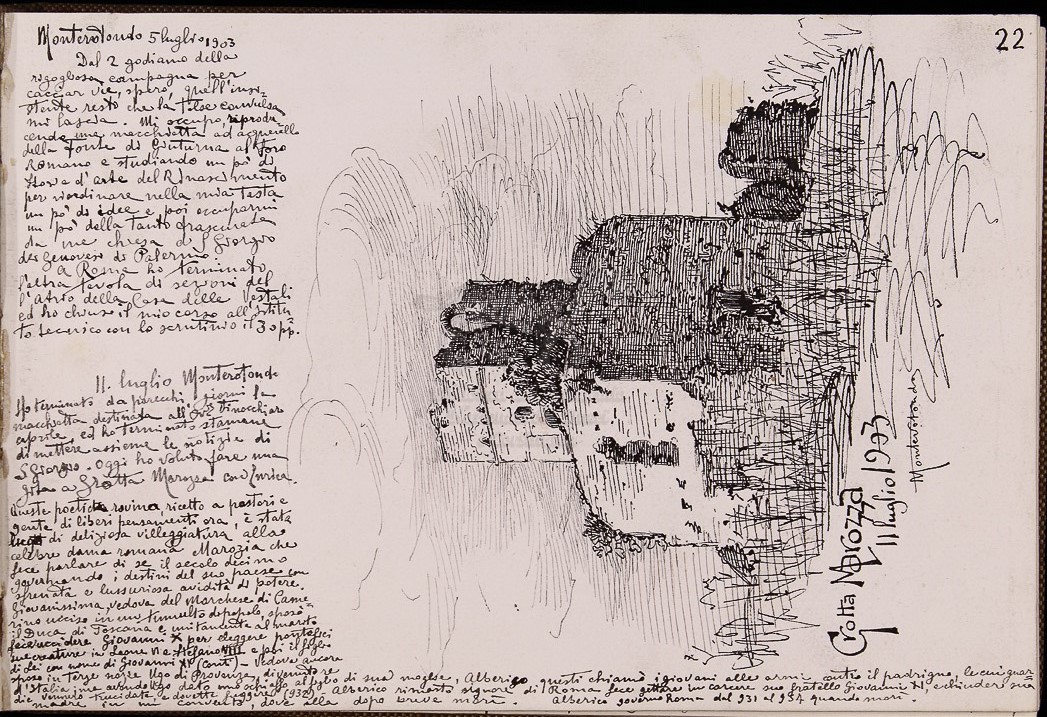 22
Monterotondo 5 luglio 1903
Dal 2 godiamo della
rigogliosa campagna per
cacciar via, spero, quell'insi-
stente resto che la tosse convulsa
mi lascia. Mi occupo, riprodu
cendo una macchietta ad acquerello
della Fonte di Giuturna al Foro
Romano e studiando un pò di
Storia d'arte del Rinascimento
per riordinare nella mia testa
un pò di idee e poi occuparmi
un pò della tanto trascurata
da me chiesa di S Giorgio
dei Genovesi di Palermo.
A Roma ho terminato
l'altra tavola di sezioni del
l'Atrio della Casa delle Vestali
ed ho chiuso il mio corso all'Istitu
to tecnico con lo scrutinio il 30 pp.
11. luglio Monterotondo
Ho terminato da parecchi giorni la
macchietta destinata all'
ed ho terminato stamane
di mettere assieme le notizie di
S Giorgio. Oggi ho voluto fare una
gita a Grotta Marozza con
Questa poetica rovina, ricetto a pastori e
gente di liberi pensamenti ora, è stata
luogo di deliziosa villeggiatura alla
celebre dama romana Marozia che
fece parlare di se il secolo decimo
governando i destini del suo paese con
sfrenata e lussuriosa avidità di potere.
Giovanissima, vedova del Marchese di Came-
rino ucciso in un tumulto di popolo, sposò
il Duca di Toscana e unitamente al marito
fece uccidere Giovanni X per eleggere pontefici
sue creature in Leone VI e Stefano VIII e poi il figlio
di lei con nome di Giovanni XI (cont) - Vedova ancora
sposò in terze nozze Ugo di Provenza, divenuto re
d'Italia; ma avendo Ugo dato uno schiaffo al figlio di sua moglie, Alberigo, questi chiamò i giovani alle armi contro il padrigno, le cui guar-
die vennero trucidate e dovette fuggire (932). Alberico rimasto signore di Roma fece gettare in carcere suo fratello Giovanni XI, e chiudere sua
madre in un convento, dove ella dopo breve morì. Alberico governò Roma dal 931 al 954 quando morì.
Grotta Marozza
11 luglio 1903
Monterotondo